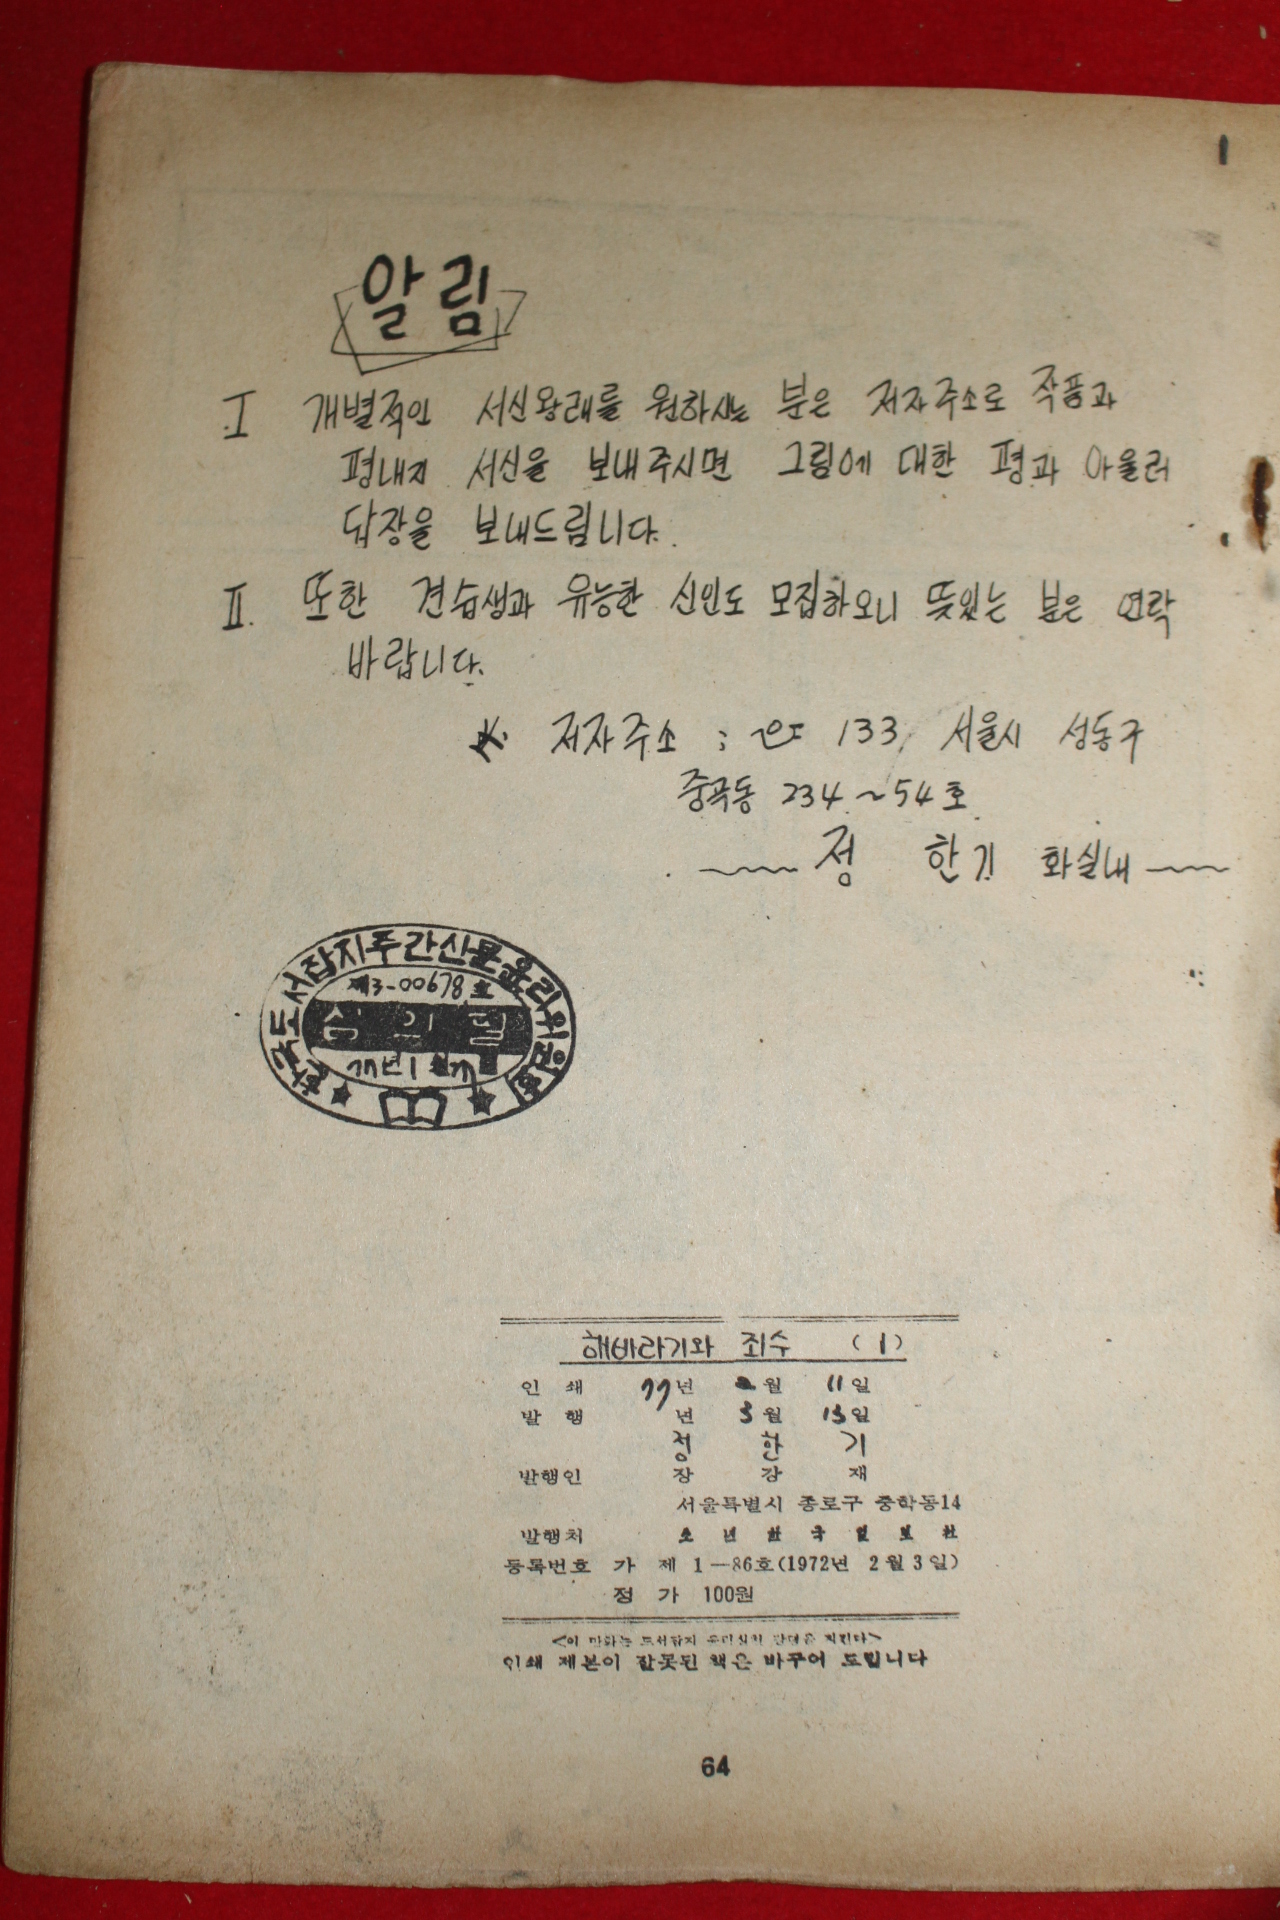 알림
I 개별적인 서신왕래를 원하시는 분은 저자주소로 작품과
평내지 서신을 보내주시면 그림에 대한 평과 아울러
답장을 보내드립니다.
II. 또한 견습생과 유능한 신인도 모집하오니 뜻있는 분은 연락
바랍니다.
※ 저자주소 : 133 서울시 성동구
중곡동 234~54호
정 한기 화실내
한국도서잡지주간신문윤리위원회
제3-00678호
심의필
77년 1월
해바라기와 죄수 (1)
인쇄 77년 2월 11일
발행 년 3월 13일
정 한 기
발행인 장 강 재
서울특별시 종로구 중학동14
발행처 소년한국일보社
등록번호 가 제 1—86호(1972년 2월3일)
정 가 100원
<이 만화는 도서잡지 윤리실천 강령을 지킨다>
인쇄 제본이 잘못된 책은 바꾸어 드립니다
64